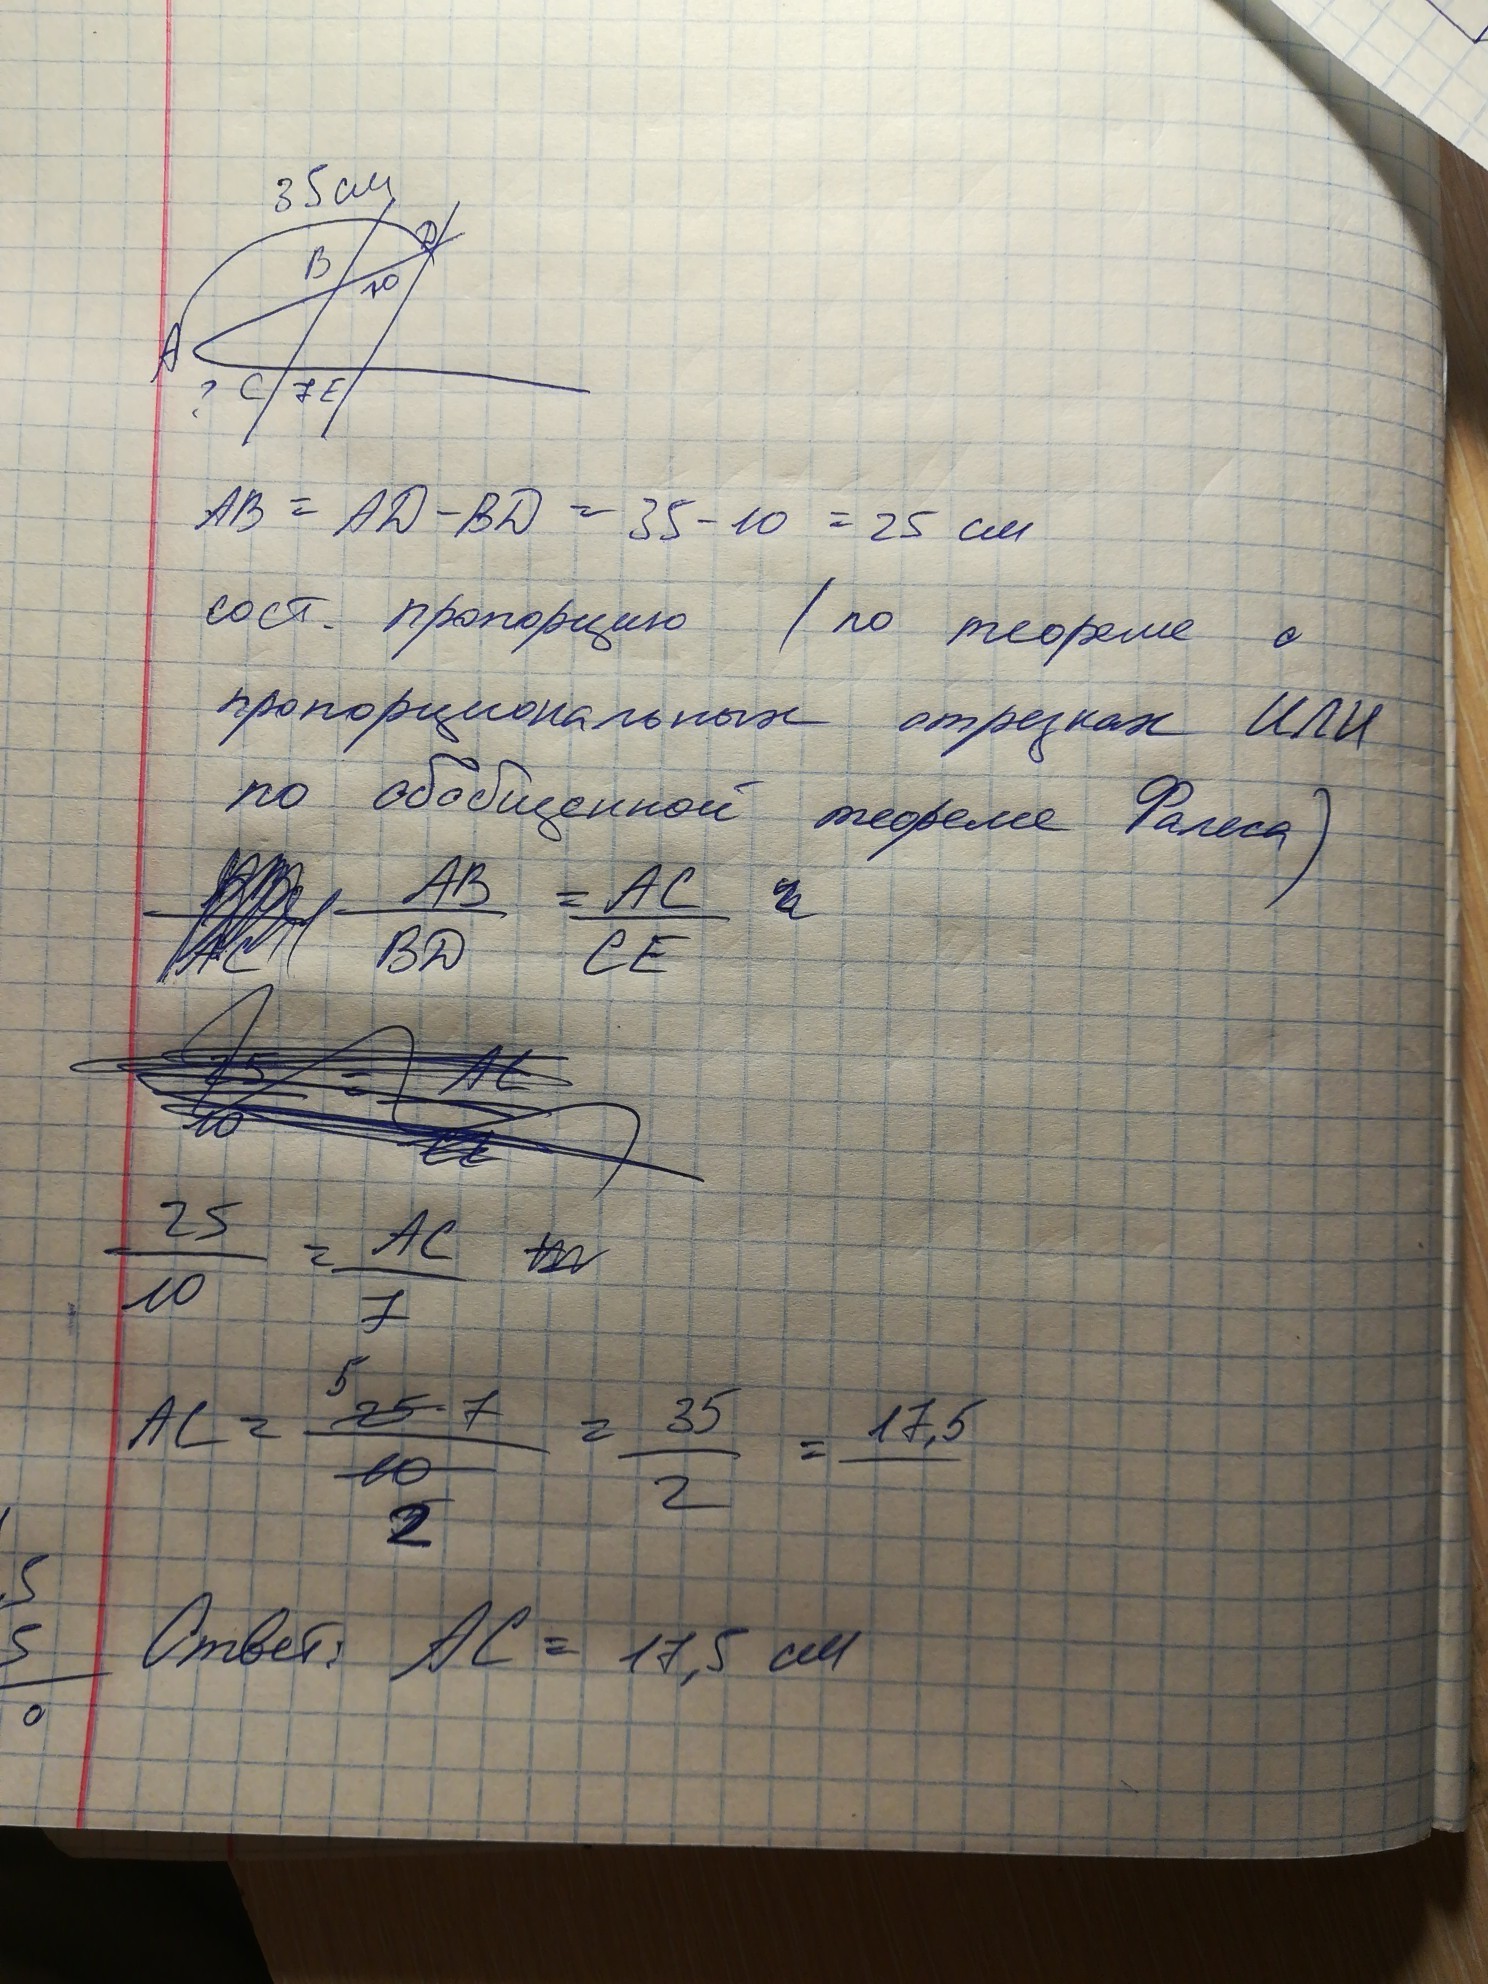 35 см
B D
10
A
? C 7 E
AB = AD - BD = 35 - 10 = 25 см
сост. пропорцию (по теореме о
пропорциональных отрезках ИЛИ
по обобщенной теореме Фалеса)
AB/BD = AC/CE
25/10 = AC/7
AC = 25·7/10 = 35/2 = 17,5
5
2
,5
5
0
Ответ: AC = 17,5 см